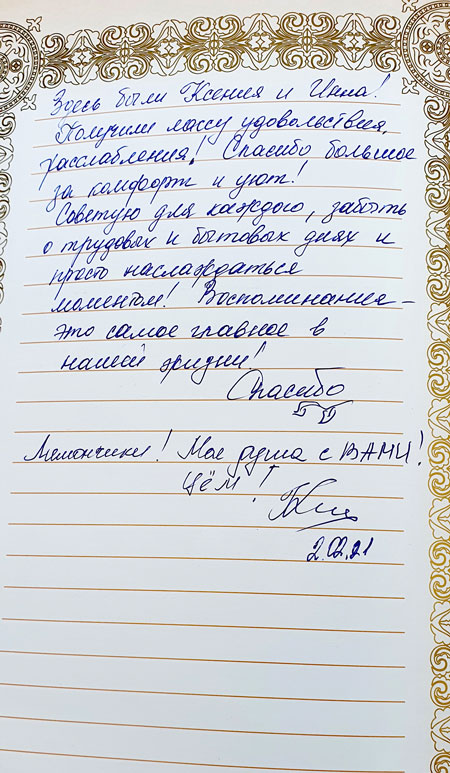 Здесь были Ксения и Инна!
Получили массу удовольствия,
расслабления! Спасибо большое
за комфорт и уют!
Советую для каждого, забыть
о трудовых и бытовых днях и
просто наслаждаться
моментом! Воспоминание -
это самое главное в
нашей жизни!
Спасибо
Лемончики! Моя душа с ВАМИ!
Цём!
2.02.21